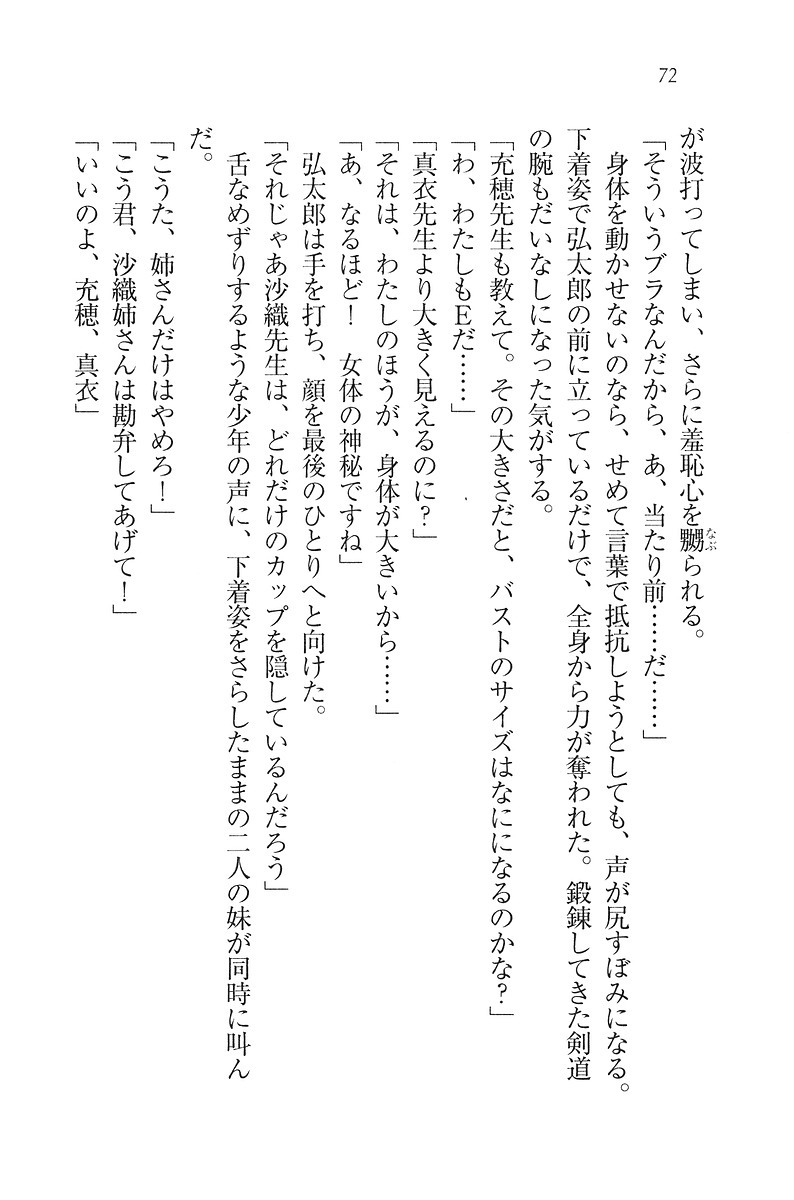 72
が波打ってしまい、さらに羞恥心を嬲られる。
なぶ
「そういうブラなんだから、あ、当たり前……だ……」
身体を動かせないのなら、せめて言葉で抵抗しようとしても、声が尻すぼみになる。
下着姿で弘太郎の前に立っているだけで、全身から力が奪われた。鍛錬してきた剣道
の腕もだいなしになった気がする。
「充穂先生も教えて。その大きさだと、バストのサイズはなにになるのかな？」
「わ、わたしもEだ……」
「真衣先生より大きく見えるのに？」
「それは、わたしのほうが、身体が大きいから……」
「あ、なるほど！　女体の神秘ですね」
弘太郎は手を打ち、顔を最後のひとりへと向けた。
「それじゃあ沙織先生は、どれだけのカップを隠しているんだろう」
舌なめずりするような少年の声に、下着姿をさらしたままの二人の妹が同時に叫ん
だ。
「こうた、姉さんだけはやめろ！」
「こう君、沙織姉さんは勘弁してあげて！」
「いいのよ、充穂、真衣」